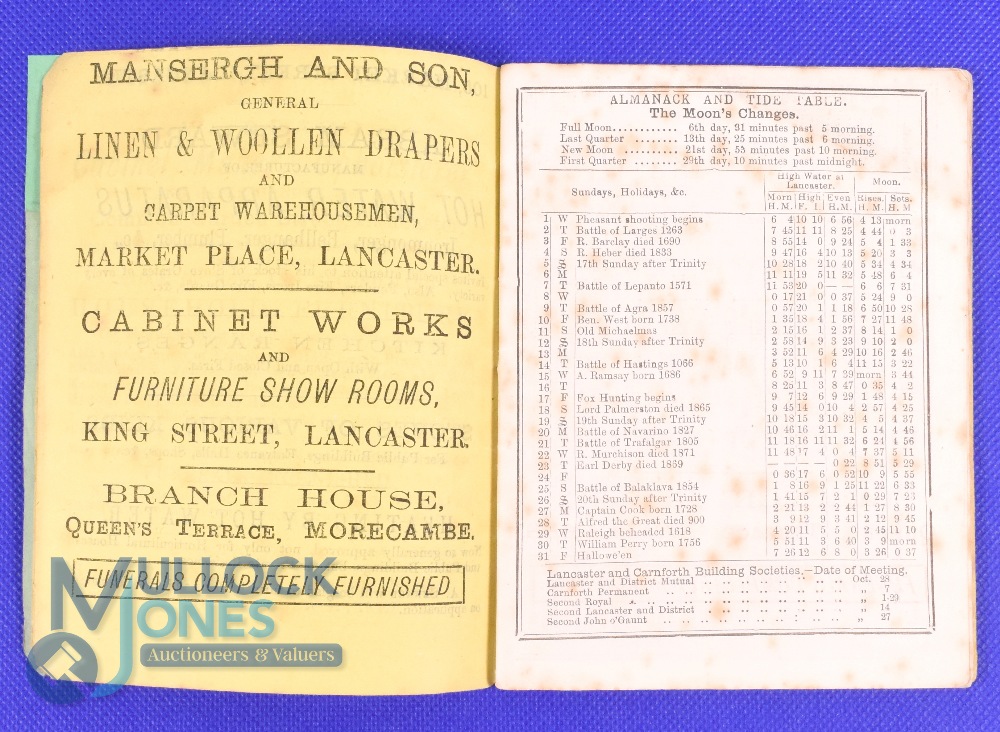 MANSERGH AND SON,
GENERAL
LINEN & WOOLLEN DRAPERS
AND
CARPET WAREHOUSEMEN,
MARKET PLACE, LANCASTER.
CABINET WORKS
AND
FURNITURE SHOW ROOMS,
KING STREET, LANCASTER.
BRANCH HOUSE,
QUEEN'S TERRACE, MORECAMBE.
FUNERALS COMPLETELY FURNISHED
MULLOCK
JONES
Auctioneers & Valuers
ALMANACK AND TIDE TABLE.
The Moon's Changes.
Full Moon............ 6th day, 21 minutes past 5 morning.
Last Quarter ........ 13th day, 25 minutes past 6 morning.
New Moon .......... 21st day, 55 minutes past 10 morning.
First Quarter ........ 29th day, 10 minutes past midnight.
Sundays, Holidays, &c. High Water at Lancaster. Moon.
Morn High Even Rises. Sets.
H. M. F. I. H.M. H. M. H. M
1 W Pheasant shooting begins 6 4 10 10 6 56 4 13 morn
2 T Battle of Larges 1263 7 45 11 11 8 25 4 44 0 3
3 F R. Barclay died 1690 8 55 14 0 9 24 5 4 1 33
4 S R. Heber died 1833 9 47 16 4 10 13 5 20 3 3
5 S 17th Sunday after Trinity 10 28 18 2 10 40 5 34 4 34
6 M 11 11 19 5 11 32 5 48 6 4
7 T Battle of Lepanto 1571 11 53 20 0 — — 6 6 7 31
8 W 0 17 21 0 0 37 5 24 9 0
9 T Battle of Agra 1857 0 57 20 1 1 18 6 50 10 28
10 F Ben. West born 1738 1 35 18 4 1 56 7 27 11 48
11 S Old Michaelmas 2 15 16 1 2 37 8 14 1 0
12 S 18th Sunday after Trinity 2 58 14 9 3 23 9 10 2 0
13 M 3 52 11 6 4 29 10 16 2 46
14 T Battle of Hastings 1066 5 13 10 1 6 4 11 15 3 22
15 W A. Ramsay born 1686 6 52 9 11 7 39 morn 3 44
16 T 8 25 11 3 8 47 0 35 4 2
17 F Fox Hunting begins 9 7 12 6 9 29 1 48 4 15
18 S Lord Palmerston died 1865 9 45 14 0 10 4 2 57 4 25
19 S 19th Sunday after Trinity 10 18 15 3 10 32 4 5 4 37
20 M Battle of Navarino 1827 10 46 16 2 11 1 5 14 4 46
21 T Battle of Trafalgar 1805 11 18 16 11 11 32 6 24 4 56
22 W R. Murchison died 1871 11 48 17 4 0 4 7 37 5 11
23 T Earl Derby died 1869 — — — — 0 22 8 51 5 29
24 F 0 36 17 6 0 52 10 9 5 55
25 S Battle of Balaklava 1854 1 8 16 9 1 25 11 22 6 33
26 S 20th Sunday after Trinity 1 41 15 7 2 1 0 29 7 23
27 M Captain Cook born 1728 2 21 13 2 2 44 1 27 8 30
28 T Alfred the Great died 900 3 9 12 9 3 41 2 12 9 45
29 W Raleigh beheaded 1618 4 20 11 5 5 0 2 45 11 10
30 T William Perry born 1756 5 51 11 3 6 40 3 9 morn
31 F Hallowe'en 7 26 12 6 8 0 3 26 0 37
Lancaster and Carnforth Building Societies.—Date of Meeting.
Lancaster and District Mutual .. .. .. .. .. .. Oct. 28
Carnforth Permanent .. .. .. .. .. .. .. „ 7
Second Royal .. .. .. .. .. .. .. „ 1-29
Second Lancaster and District .. .. .. .. .. „ 14
Second John o'Gaunt .. .. .. .. .. .. „ 27